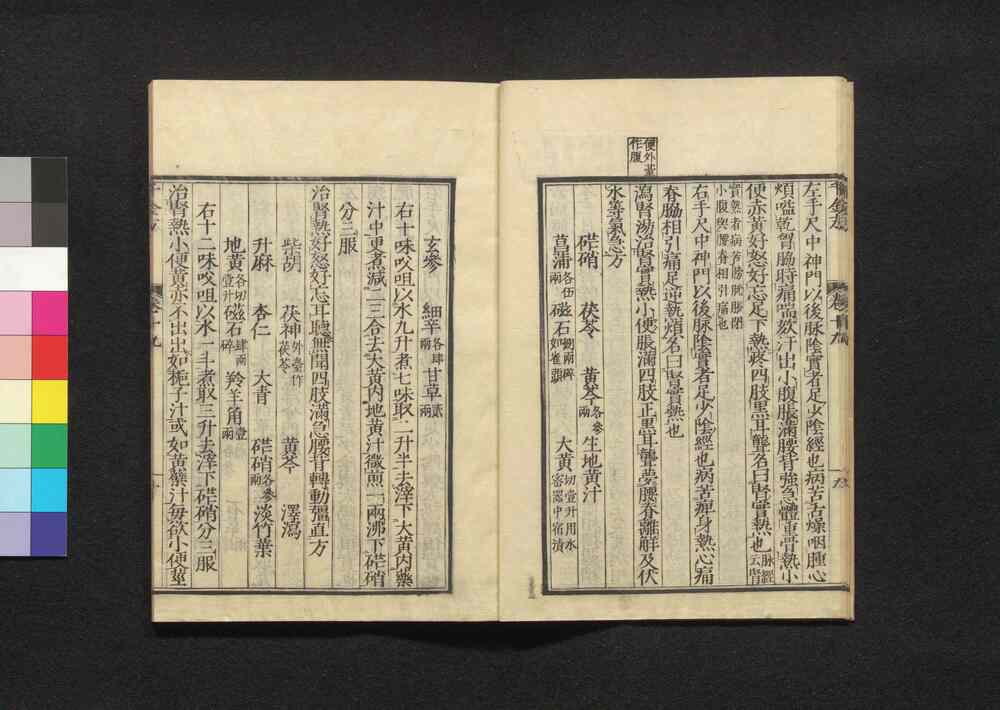 便外臺
作腹
左手尺中神門以後脉陰實者足少陰經也病苦舌燥咽腫心
煩嗌乾胷脇時痛喘欬汗出小腹脹滿腰背強急體重骨熱小
便赤黄好怒好忘足下熱疼四肢黑耳聾名曰腎實熱也脉經云腎
實熱者病苦膀胱脹閉
小腹與腰脊相引痛也
右手尺中神門以後脉陰實者足少陰經也病苦痹身熱心痛
脊脇相引痛足逆熱煩名曰腎實熱也
瀉腎湯治腎實熱小便脹滿四肢正黑耳聾夢腰脊離解及伏
水等氣急方
硭硝 茯苓 黄芩各叁兩 生地黄汁
菖蒲各伍兩 磁石捌兩碎如雀頭 大黄切壹升用水密器中宿漬
玄參 細辛各肆兩 甘草貳兩
右十味㕮咀以水九升煮七味取二升半去滓下大黄内藥
汁中更煮減二三合去大黄内地黄汁微煎一兩沸下硭硝
分三服
治腎熱好怒好忘耳聽無聞四肢滿急腰背轉動強直方
柴胡 茯神外臺作茯苓 黄芩 澤瀉
升麻 杏仁 大青 硭硝各叁兩 淡竹葉
地黄各切壹升 磁石肆兩碎 羚羊角壹兩
右十二味㕮咀以水一斗煮取三升去滓下硭硝分三服
治腎熱小便黄赤不出出如梔子汁或如黄蘗汁每欲小便莖